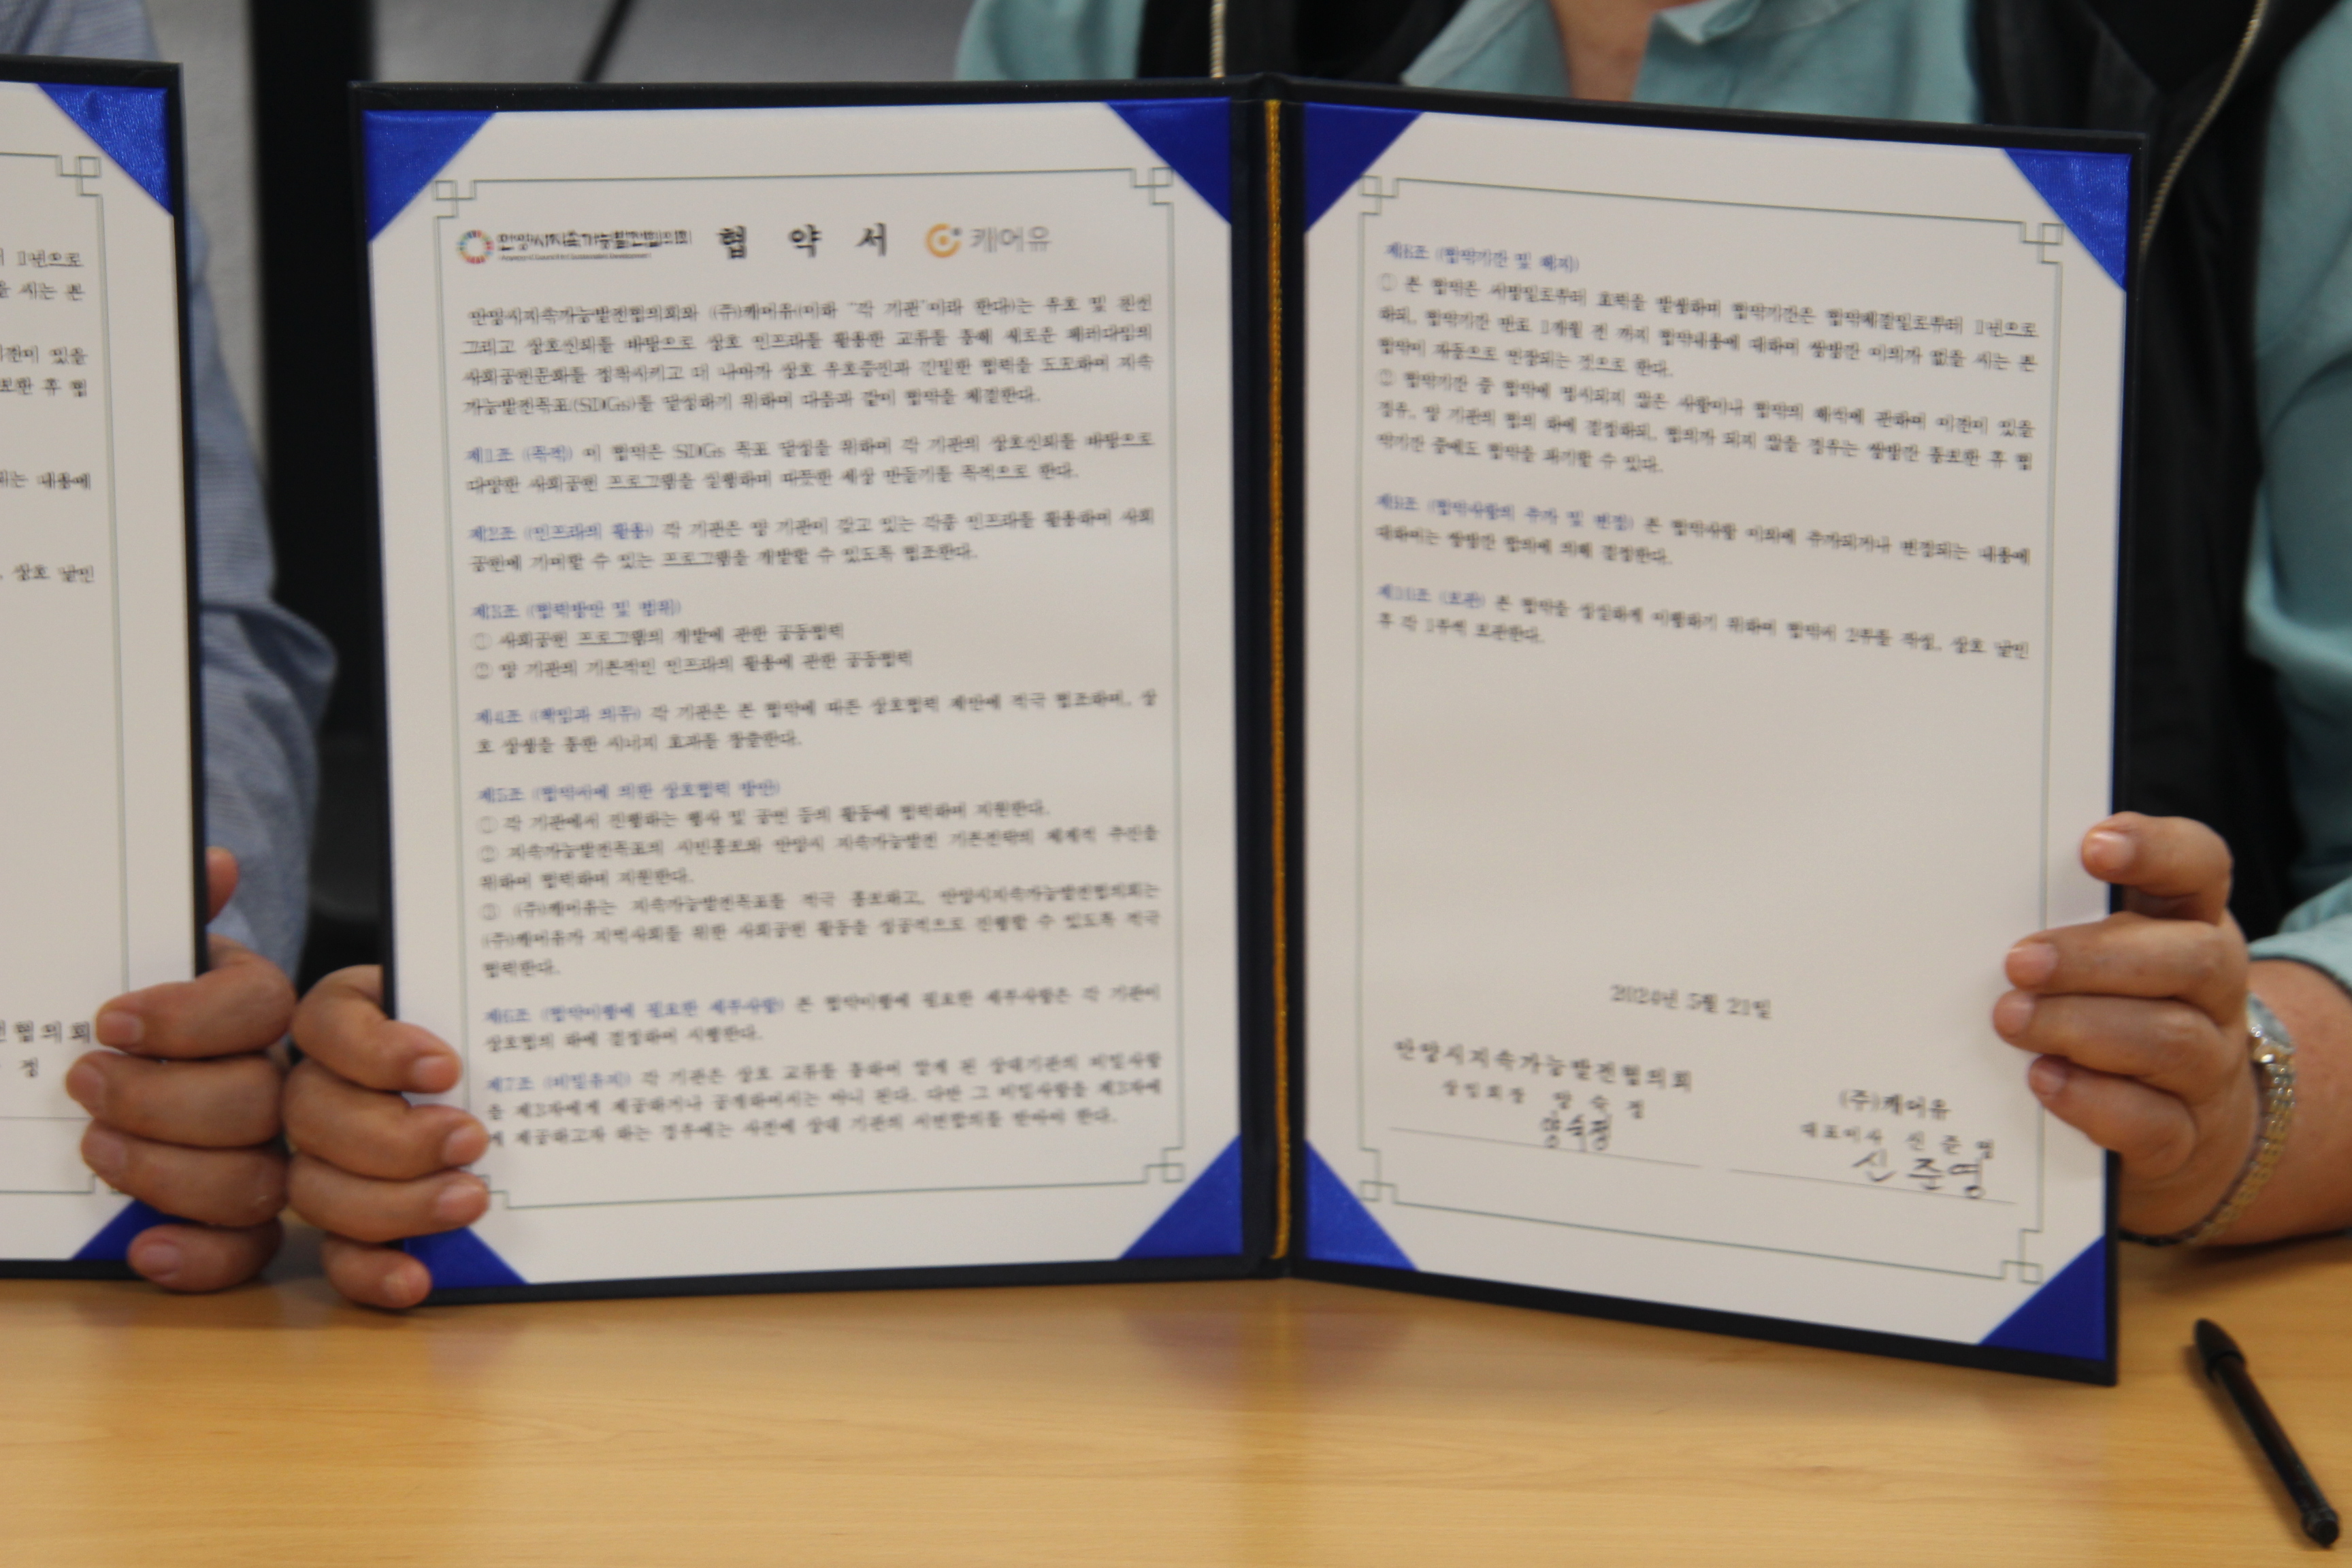 1년으로
을 시는 본
이견이 있을
통보한 후 협
되는 내용에
, 상호 날인
전협의회
정
안양시지속가능발전협의회 협 약 서 케어유
안양시지속가능발전협의회와 (주)케어유(이하 "각 기관"이라 한다)는 우호 및 친선
그리고 상호신뢰를 바탕으로 상호 인프라를 활용한 교류를 통해 새로운 패러다임의
사회공헌문화를 정착시키고 더 나아가 상호 우호증진과 긴밀한 협력을 도모하며 지속
가능발전목표(SDGs)를 달성하기 위하여 다음과 같이 협약을 체결한다.
제1조 (목적) 이 협약은 SDGs 목표 달성을 위하여 각 기관의 상호신뢰를 바탕으로
다양한 사회공헌 프로그램을 실행하며 따뜻한 세상 만들기를 목적으로 한다.
제2조 (인프라의 활용) 각 기관은 양 기관이 갖고 있는 각종 인프라를 활용하여 사회
공헌에 기여할 수 있는 프로그램을 개발할 수 있도록 협조한다.
제3조 (협력방안 및 범위)
① 사회공헌 프로그램의 개발에 관한 공동협력
② 양 기관의 기본적인 인프라의 활용에 관한 공동협력
제4조 (책임과 의무) 각 기관은 본 협약에 따른 상호협력 제안에 적극 협조하며, 상
호 상생을 통한 시너지 효과를 창출한다.
제5조 (협약서에 의한 상호협력 방안)
① 각 기관에서 진행하는 행사 및 공연 등의 활동에 협력하여 지원한다.
② 지속가능발전목표의 시민홍보와 안양시 지속가능발전 기본전략의 체계적 추진을
위하여 협력하며 지원한다.
③ (주)케어유는 지속가능발전목표를 적극 홍보하고, 안양시지속가능발전협의회는
(주)케어유가 지역사회를 위한 사회공헌 활동을 성공적으로 진행할 수 있도록 적극
협력한다.
제6조 (협약이행에 필요한 세부사항) 본 협약이행에 필요한 세부사항은 각 기관이
상호협의 하에 결정하여 시행한다.
제7조 (비밀유지) 각 기관은 상호 교류를 통하여 알게 된 상대기관의 비밀사항
을 제3자에게 제공하거나 공개하여서는 아니 된다. 다만 그 비밀사항을 제3자에
게 제공하고자 하는 경우에는 사전에 상대 기관의 서면합의를 받아야 한다.
제8조 (협약기간 및 해지)
① 본 협약은 서명일로부터 효력을 발생하며 협약기간은 협약체결일로부터 1년으로
하되, 협약기간 만료 1개월 전 까지 협약내용에 대하여 쌍방간 이의가 없을 시는 본
협약이 자동으로 연장되는 것으로 한다.
② 협약기간 중 협약에 명시되지 않은 사항이나 협약의 해석에 관하여 이견이 있을
경우, 양 기관의 협의 하에 결정하되, 협의가 되지 않을 경우는 쌍방간 통보한 후 협
약기간 중에도 협약을 파기할 수 있다.
제9조 (협약사항의 추가 및 변경) 본 협약사항 이외에 추가되거나 변경되는 내용에
대하여는 쌍방간 합의에 의해 결정한다.
제10조 (보관) 본 협약을 성실하게 이행하기 위하여 협약서 2부를 작성, 상호 날인
후 각 1부씩 보관한다.
2024년 5월 21일
안양시지속가능발전협의회
상임회장 양 숙 정
(주)케어유
대표이사 신 준 영
신 준영